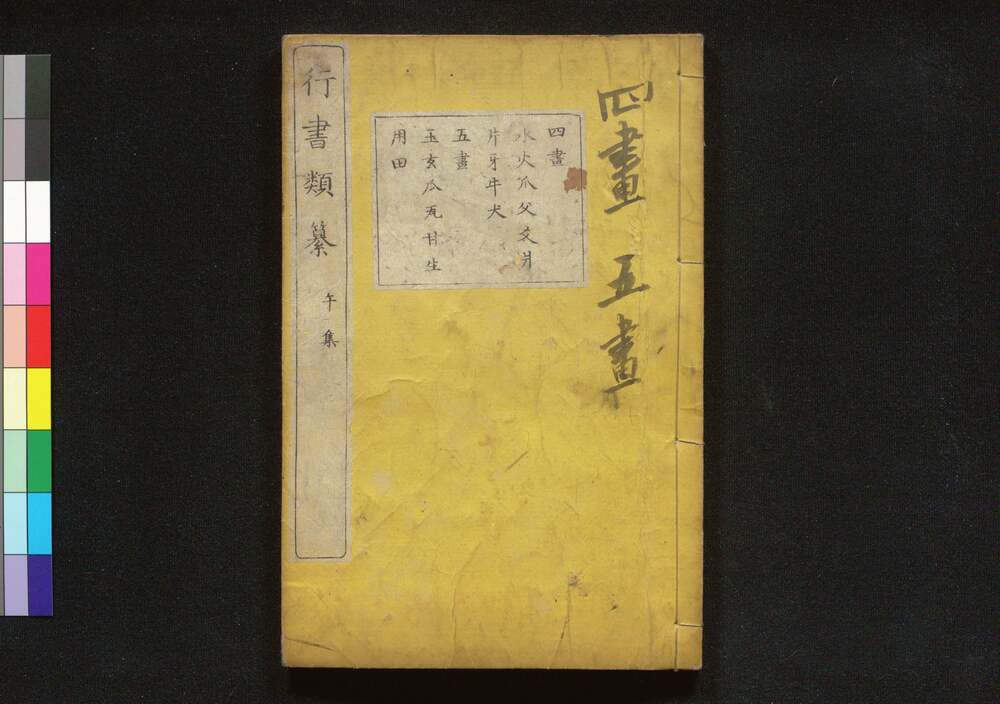 四畫 五畫
四畫
水火爪父爻爿
片牙牛犬
五畫
玉玄瓜瓦甘生
用田
行書類纂 午集